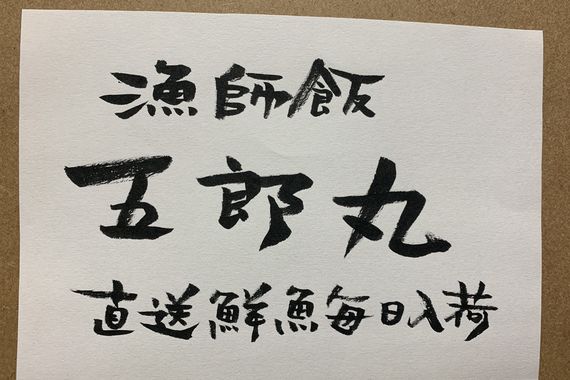 漁師飯
五郎丸
直送鮮魚毎日入荷